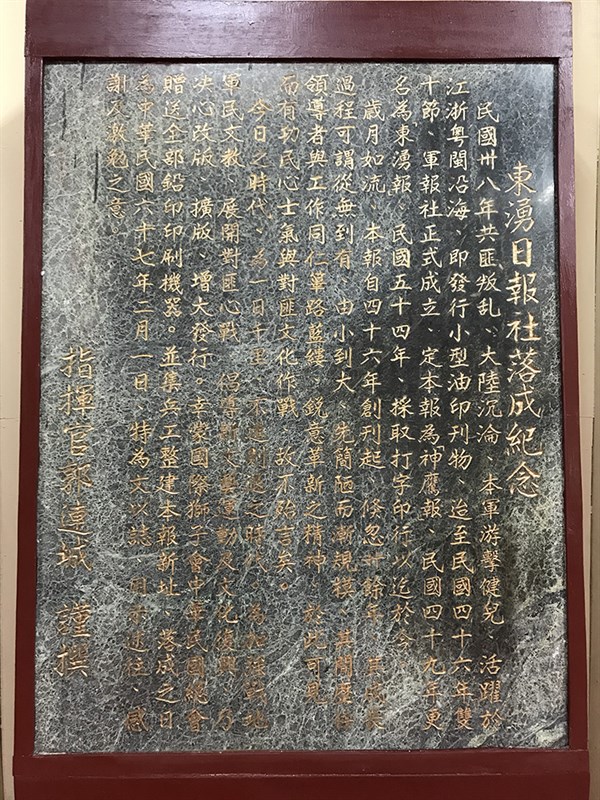 東湧日報社落成紀念
民國卅八年共匪叛乱、大陸沉淪、本軍游擊健兒、活躍於
江浙粵閩沿海、即發行小型油印刊物、迨至民國四十六年雙
十節、軍報社正式成立、定本報為神鷹報、民國四十九年更
名為東湧報、民國五十四年、採取打字印行以迄於今。
歲月如流、本報自四十六年創刊起、倏忽十餘年、其成長
過程可謂從無到有、由小到大、先簡陋而漸規模、其間歷任
領導者與工作同仁篳路藍縷、銳意革新之精神、於此可見
而有功民心士氣與對匪文化作戰、故不殆言矣。
今日之時代、為一日千里、不進則退之時代、為加強戰地
軍民文教、展開對匪心戰、倡導新文藝運動及文化復興、乃
決心改版、擴版、增大發行。幸蒙國際獅子會中華民國總會
贈送全部鉛印印刷機器。並集兵工整建本報新址、落成之日
為中華民國六十七年二月一日、特為文以誌、用示過往、感
謝及敦勉之意。
指揮官郭達城 謹撰